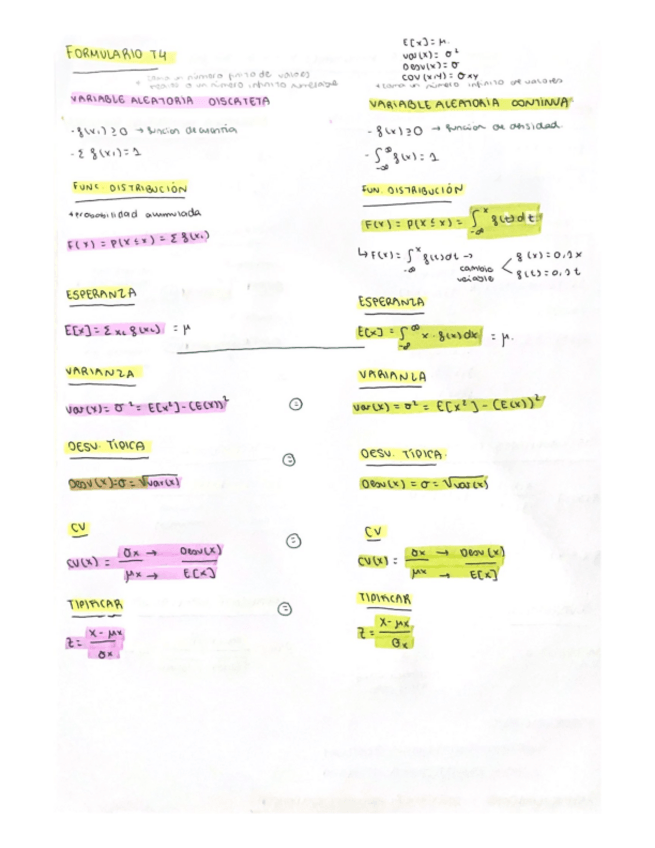 FORMULARIO T4
E[x] = μ.
var(x) = σ²
Desv(x) = σ
COV(x,y) = σxy
* toma un número finito de valores
infinito numerable
VARIABLE ALEATORIA DISCRETA
- f(xᵢ) ≥ 0 → función de cuantía
- Σ f(xᵢ) = 1
FUNC. DISTRIBUCIÓN
* probabilidad acumulada
F(x) = P(X ≤ x) = Σ f(xᵢ)
ESPERANZA
E[x] = Σ xᵢ f(xᵢ) = μ
VARIANZA
var(x) = σ² = E[x²] - (E(x))² =
DESV. TÍPICA =
Desv(x) = σ = √var(x)
CV =
CV(x) = σx → Desv(x)
μx → E[x]
TIPIFICAR =
z = x - μx
σx
* toma un número infinito de valores
VARIABLE ALEATORIA CONTINUA
- f(x) ≥ 0 → función de densidad.
- ∫_-∞^∞ f(x) = 1
FUN. DISTRIBUCIÓN
F(x) = P(X ≤ x) = ∫_-∞^x f(t) dt
↳ F(x) = ∫_-∞^x f(t) dt → cambio variable < f(x) = 0,2x
f(t) = 0,2t
ESPERANZA
E[x] = ∫_-∞^∞ x · f(x) dx = μ.
VARIANZA
var(x) = σ² = E[x²] - (E(x))²
DESV. TÍPICA.
Desv(x) = σ = √var(x)
CV
CV(x) = σx → Desv(x)
μx → E[x]
TIPIFICAR
z = x - μx
σx